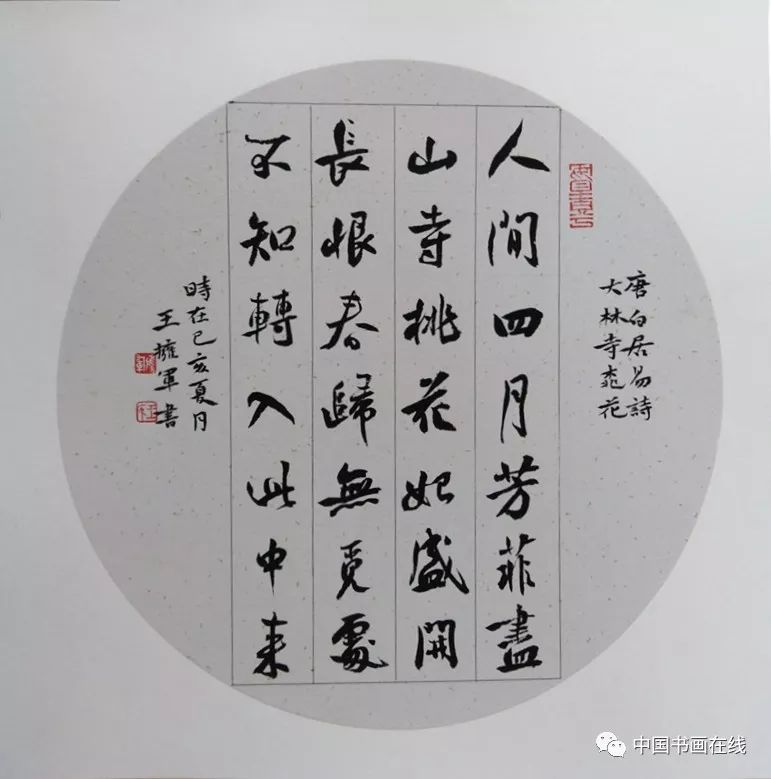 唐白居易詩
大林寺桃花
人間四月芳菲盡
山寺桃花始盛開
長恨春歸無覓處
不知轉入此中來
時在己亥夏月
王擁軍書
中国书画在线